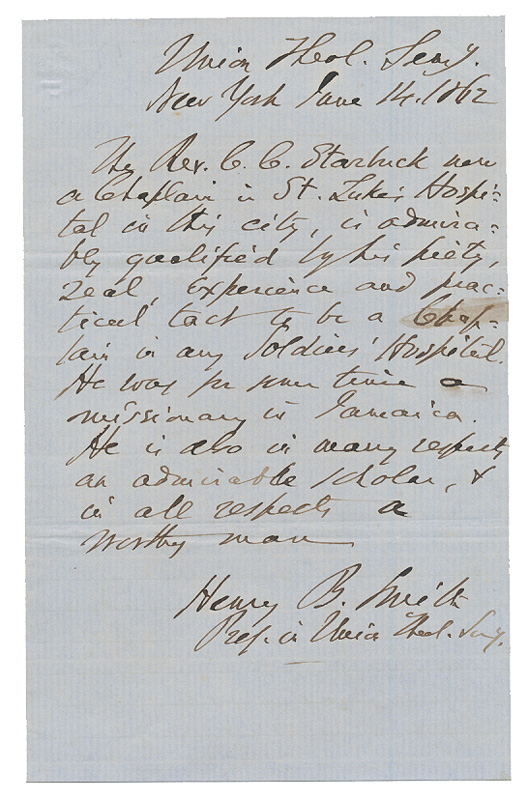 Union Theol. Semy.
New York June 14. 1862
The Rev. C. C. Starbuck now
a Chaplain in St. Luke's Hospi-
tal in this city, is admira-
bly qualified by his piety,
zeal, experience and prac-
tical tact to be a Chap-
lain in any Soldiers' Hospital.
He was for some time a
missionary in Jamaica.
He is also in many respects
an admirable scholar, &
in all respects a
worthy man
Henry B. Smith
Prof. in Union Theol. Semy.